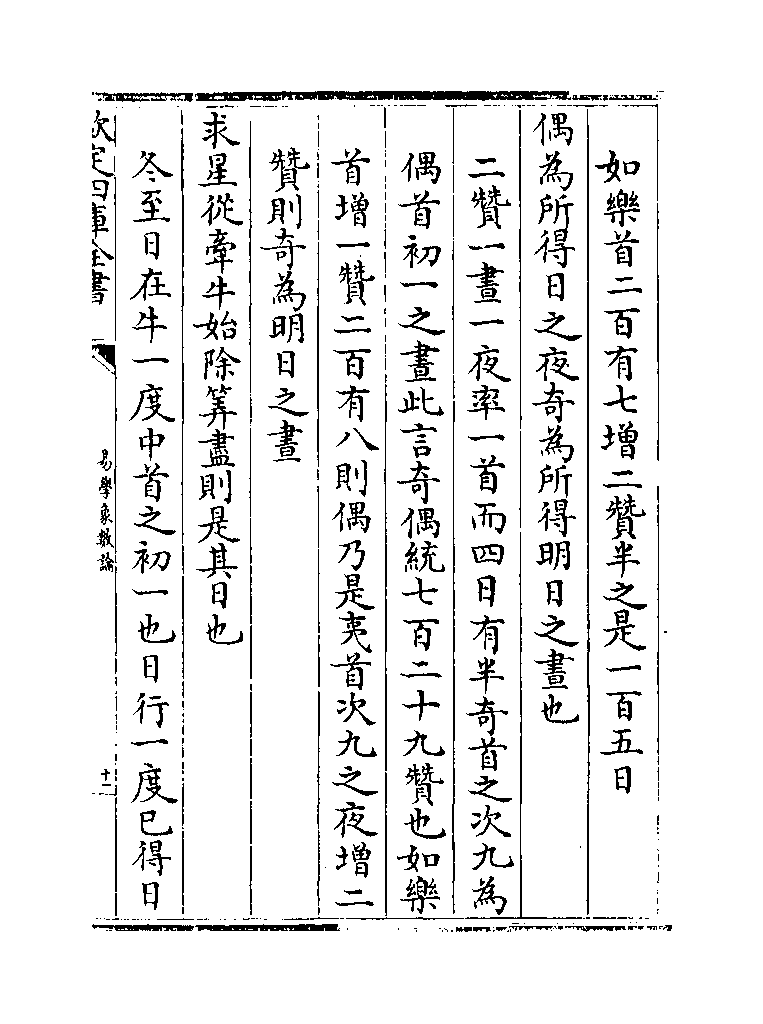 如樂首二百有七增二贊半之是一百五日
偶為所得日之夜奇為所得明日之晝也
二贊一晝一夜率一首而四日有半奇首之次九為
偶首初一之晝此言奇偶統七百二十九贊也如樂
首增一贊二百有八則偶乃是夷首次九之夜增二
贊則奇為明日之晝
求星從牽牛始除筭盡則是其日也
冬至日在牛一度中首之初一也日行一度已得日
欽定四庫全書
易學象數論
十二